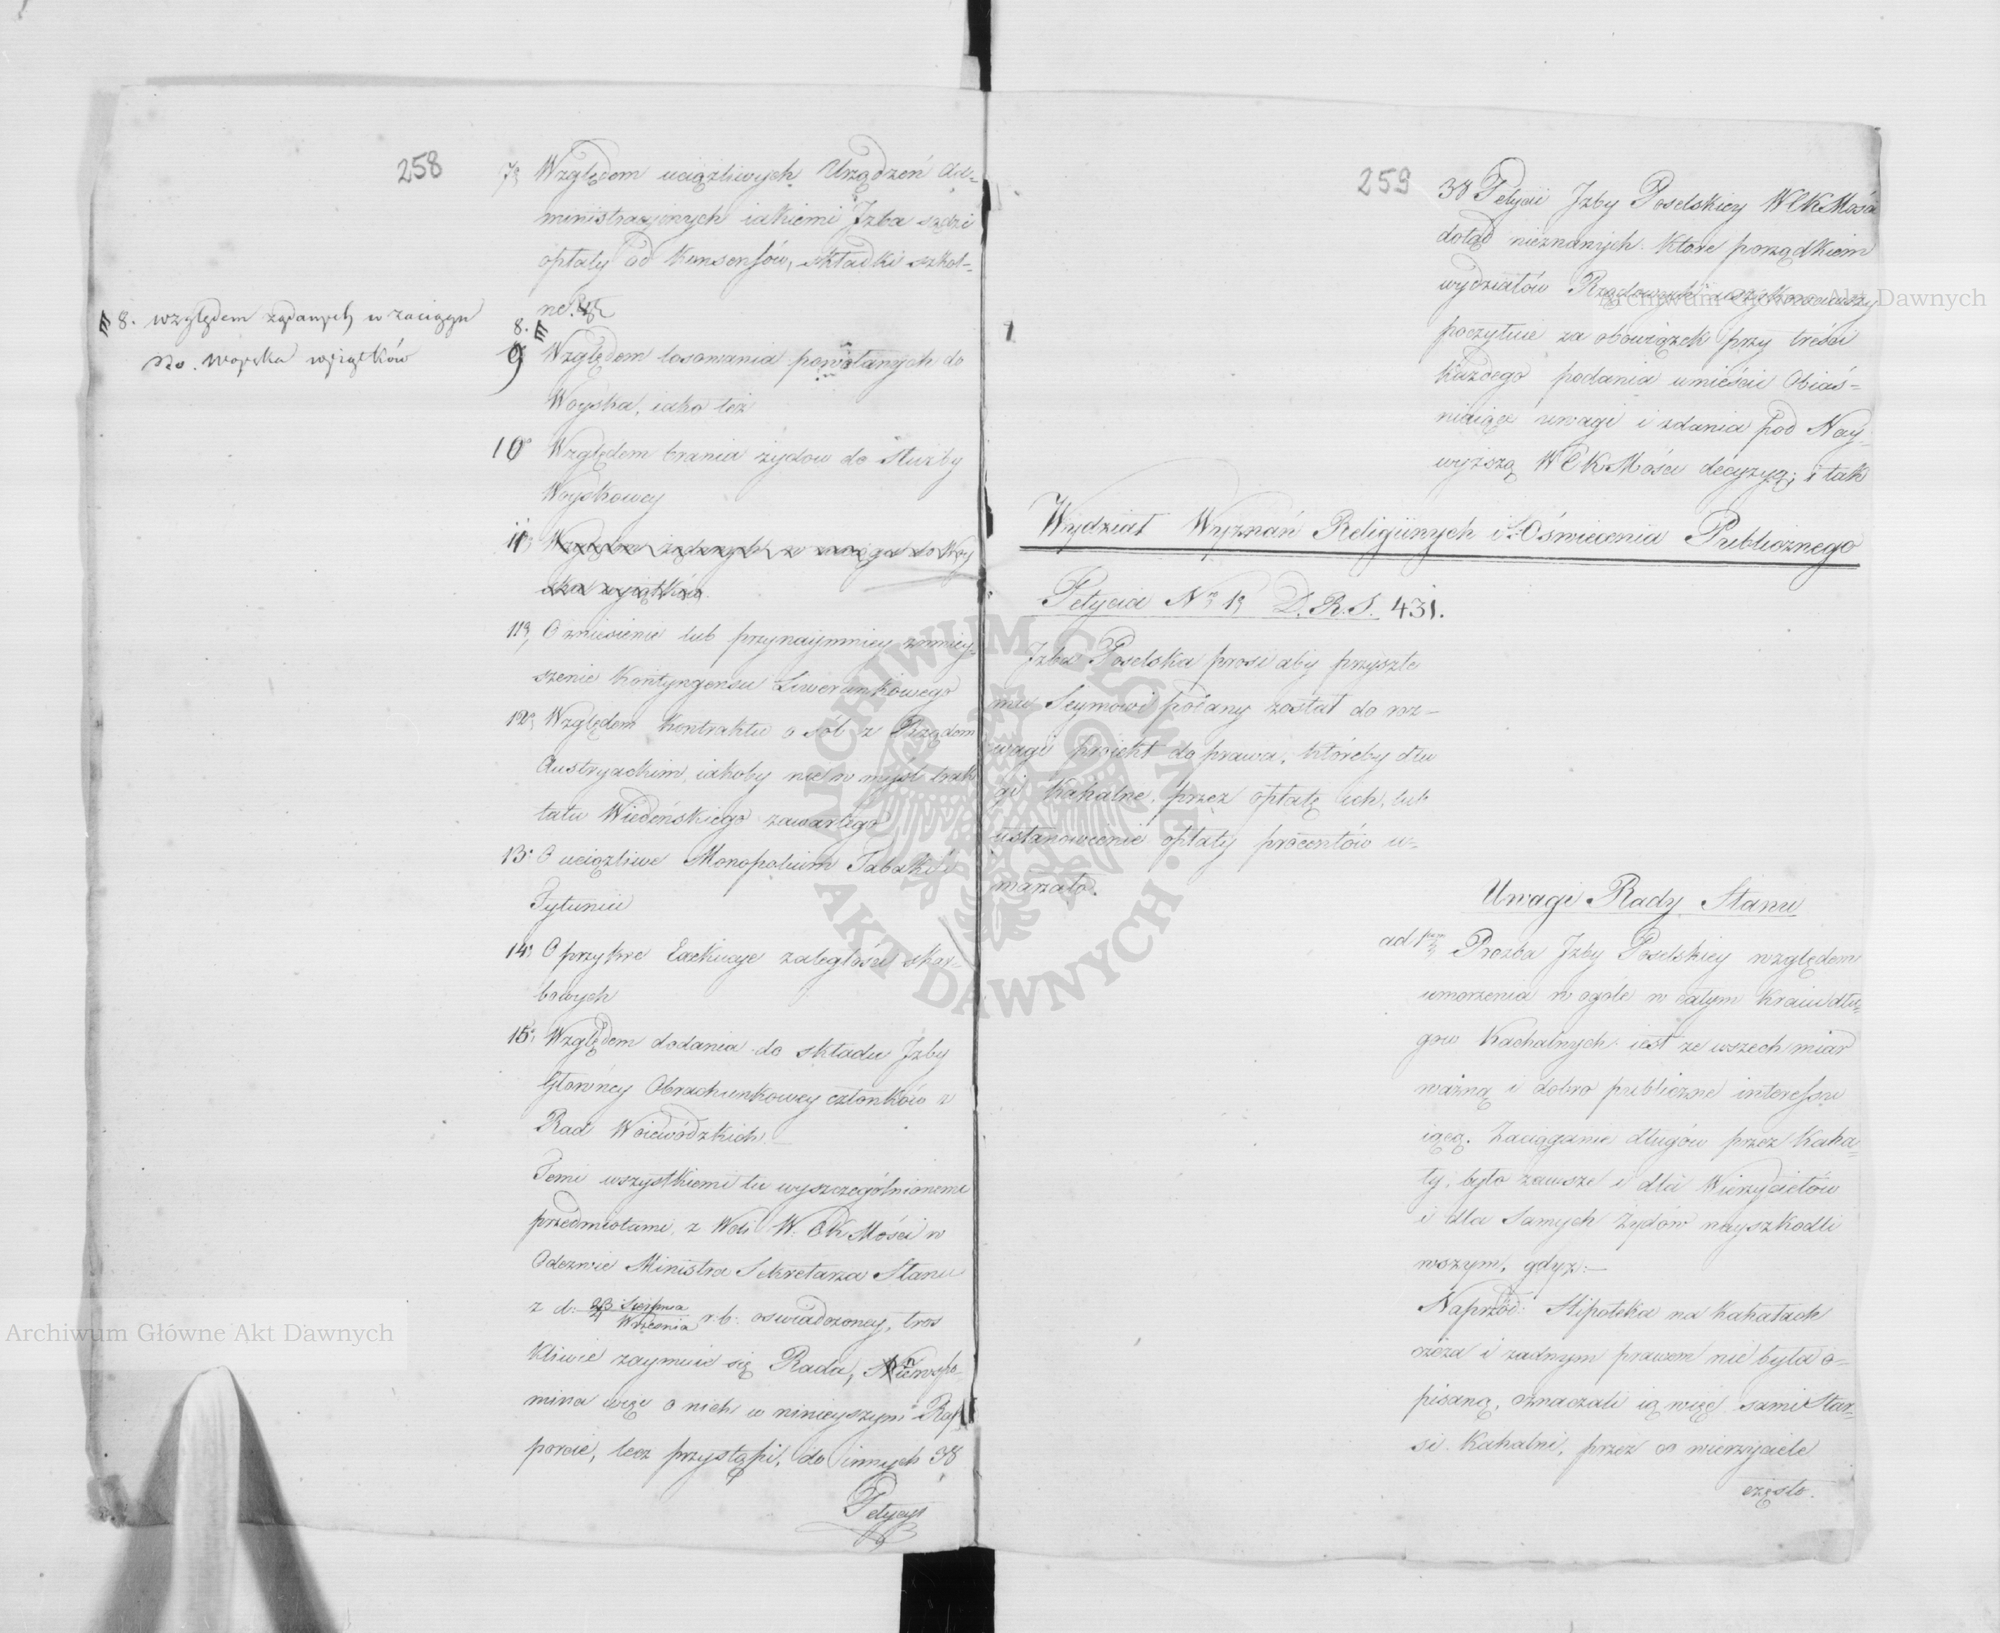 258
7º Względem uciążliwych Urządzeń Ad-
ministracyjnych iakiemi Izba sądzi
opłaty od Konsensów, składki szkol-
ne.
# 8. względem żądanych w zaciągu
do wojska wyjątków
8. #
9 Względem losowania powołanych do
Woyska, iako też
10º Względem brania żydow do służby
Woyskowey
11º Względem żądanych w zaciągu do Woy
ska wyiątków
11º, O zniesienie lub przynaymniey zmniey-
szenie Kontyngensu Liwerunkowego
12º, Względem Kontraktu o sól z Rządem
Austryackim, iakoby nie w myśl trak
tatu Wiedeńskiego zawartego
13º O uciążliwe Monopolium Tabaki i
Tytuniu
14º O przykre Exekucye zaległości skar-
bowych
15º, Względem dodania do składu Izby
Głowney Obrachunkowey członków z
Rad Woiewódzkich.
Temi wszystkiemi tu wyszczególnionemi
przedmiotami, z Woli W. C K Mości w
Odezwie Ministra Sekretarza Stanu
z d: 23 Sierpnia
4 Września r. b. oswiadczoney, tros
kliwie zaymuie się Rada, Nie wspo-
mina więc o nich w ninieyszym Rap
porcie, lecz przystąpi, do innych 38
Petycyi
259
38 Petycii Izby Poselskiey WCKMości
dotąd nieznanych. Które porządkiem
wydziałów Rządowych uszykowawszy
poczytuie za obowiązek przy treści
każdego podania umieścić Obiaś-
niaiące uwagi i zdania pod Nay-
wyższą WCKMości decyzyą; i tak
Wydział Wyznań Religiinych i Oświecenia Publicznego
Petycia Nº 1º D. R. S. 431.
Izba Poselska prosi aby przyszłe
mu Seymowi podany został do roz-
wagi proiekt do prawa, któreby dłu
gi Kahalne, przez opłatę ich, lub
ustanowienie opłaty procentów u-
marzało.
Uwagi Rady Stanu
ad 1m Prozba Izby Poselskiey względem
umorzenia w ogóle w całym Kraiu dłu-
gow Kachalnych iest ze wszech miar
ważną i dobro publiczne interessu
iącą. Zaciąganie długów przez Kaha-
ły, było zawsze i dla Wierzycielów
i dla Samych Żydów nayszkodli
wszym, gdyz:—
Naprzód: Hipoteka na Kahałach
niczem i zadnym prawem nie była o-
pisaną, oznaczali ią więc sami Star-
si Kahalni, przez co wierzyciele
często.
Archiwum Główne Akt Dawnych
Archiwum Główne Akt Dawnych
ARCHIWUM GŁÓWNE AKT DAWNYCH